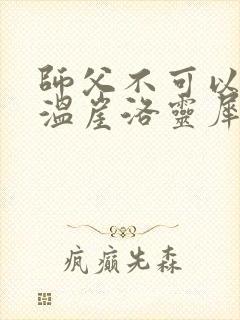 師父不可以
溫崖洛靈犀
疯癫先森